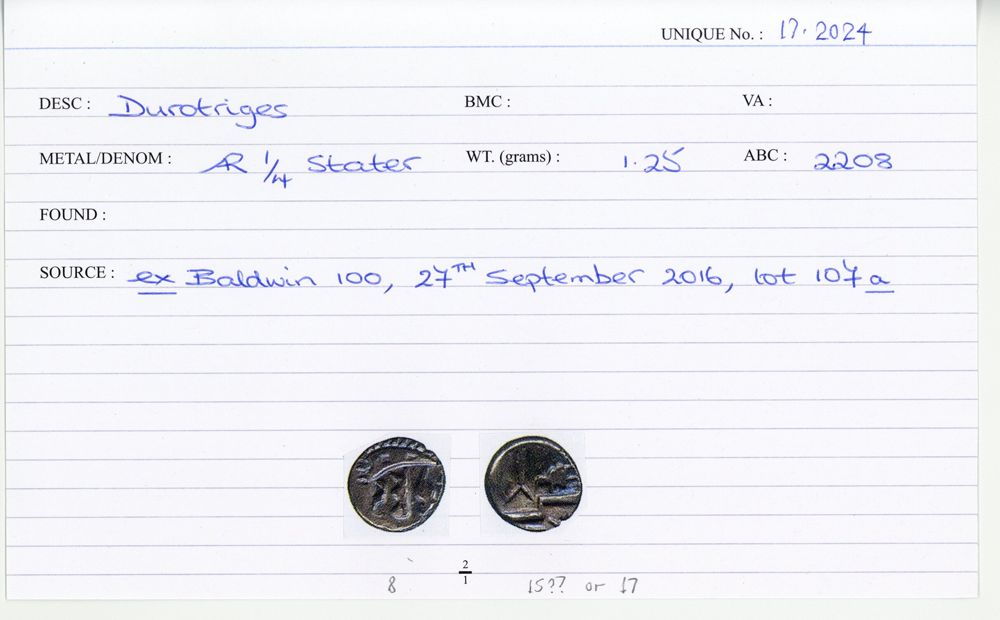 UNIQUE No. : 17.2024
DESC : Durotriges BMC : VA :
METAL/DENOM : AR 1/4 Stater WT. (grams) : 1.25 ABC : 2208
FOUND :
SOURCE : ex Baldwin 100, 27TH September 2016, lot 107a
2/1
8 15?? or 17